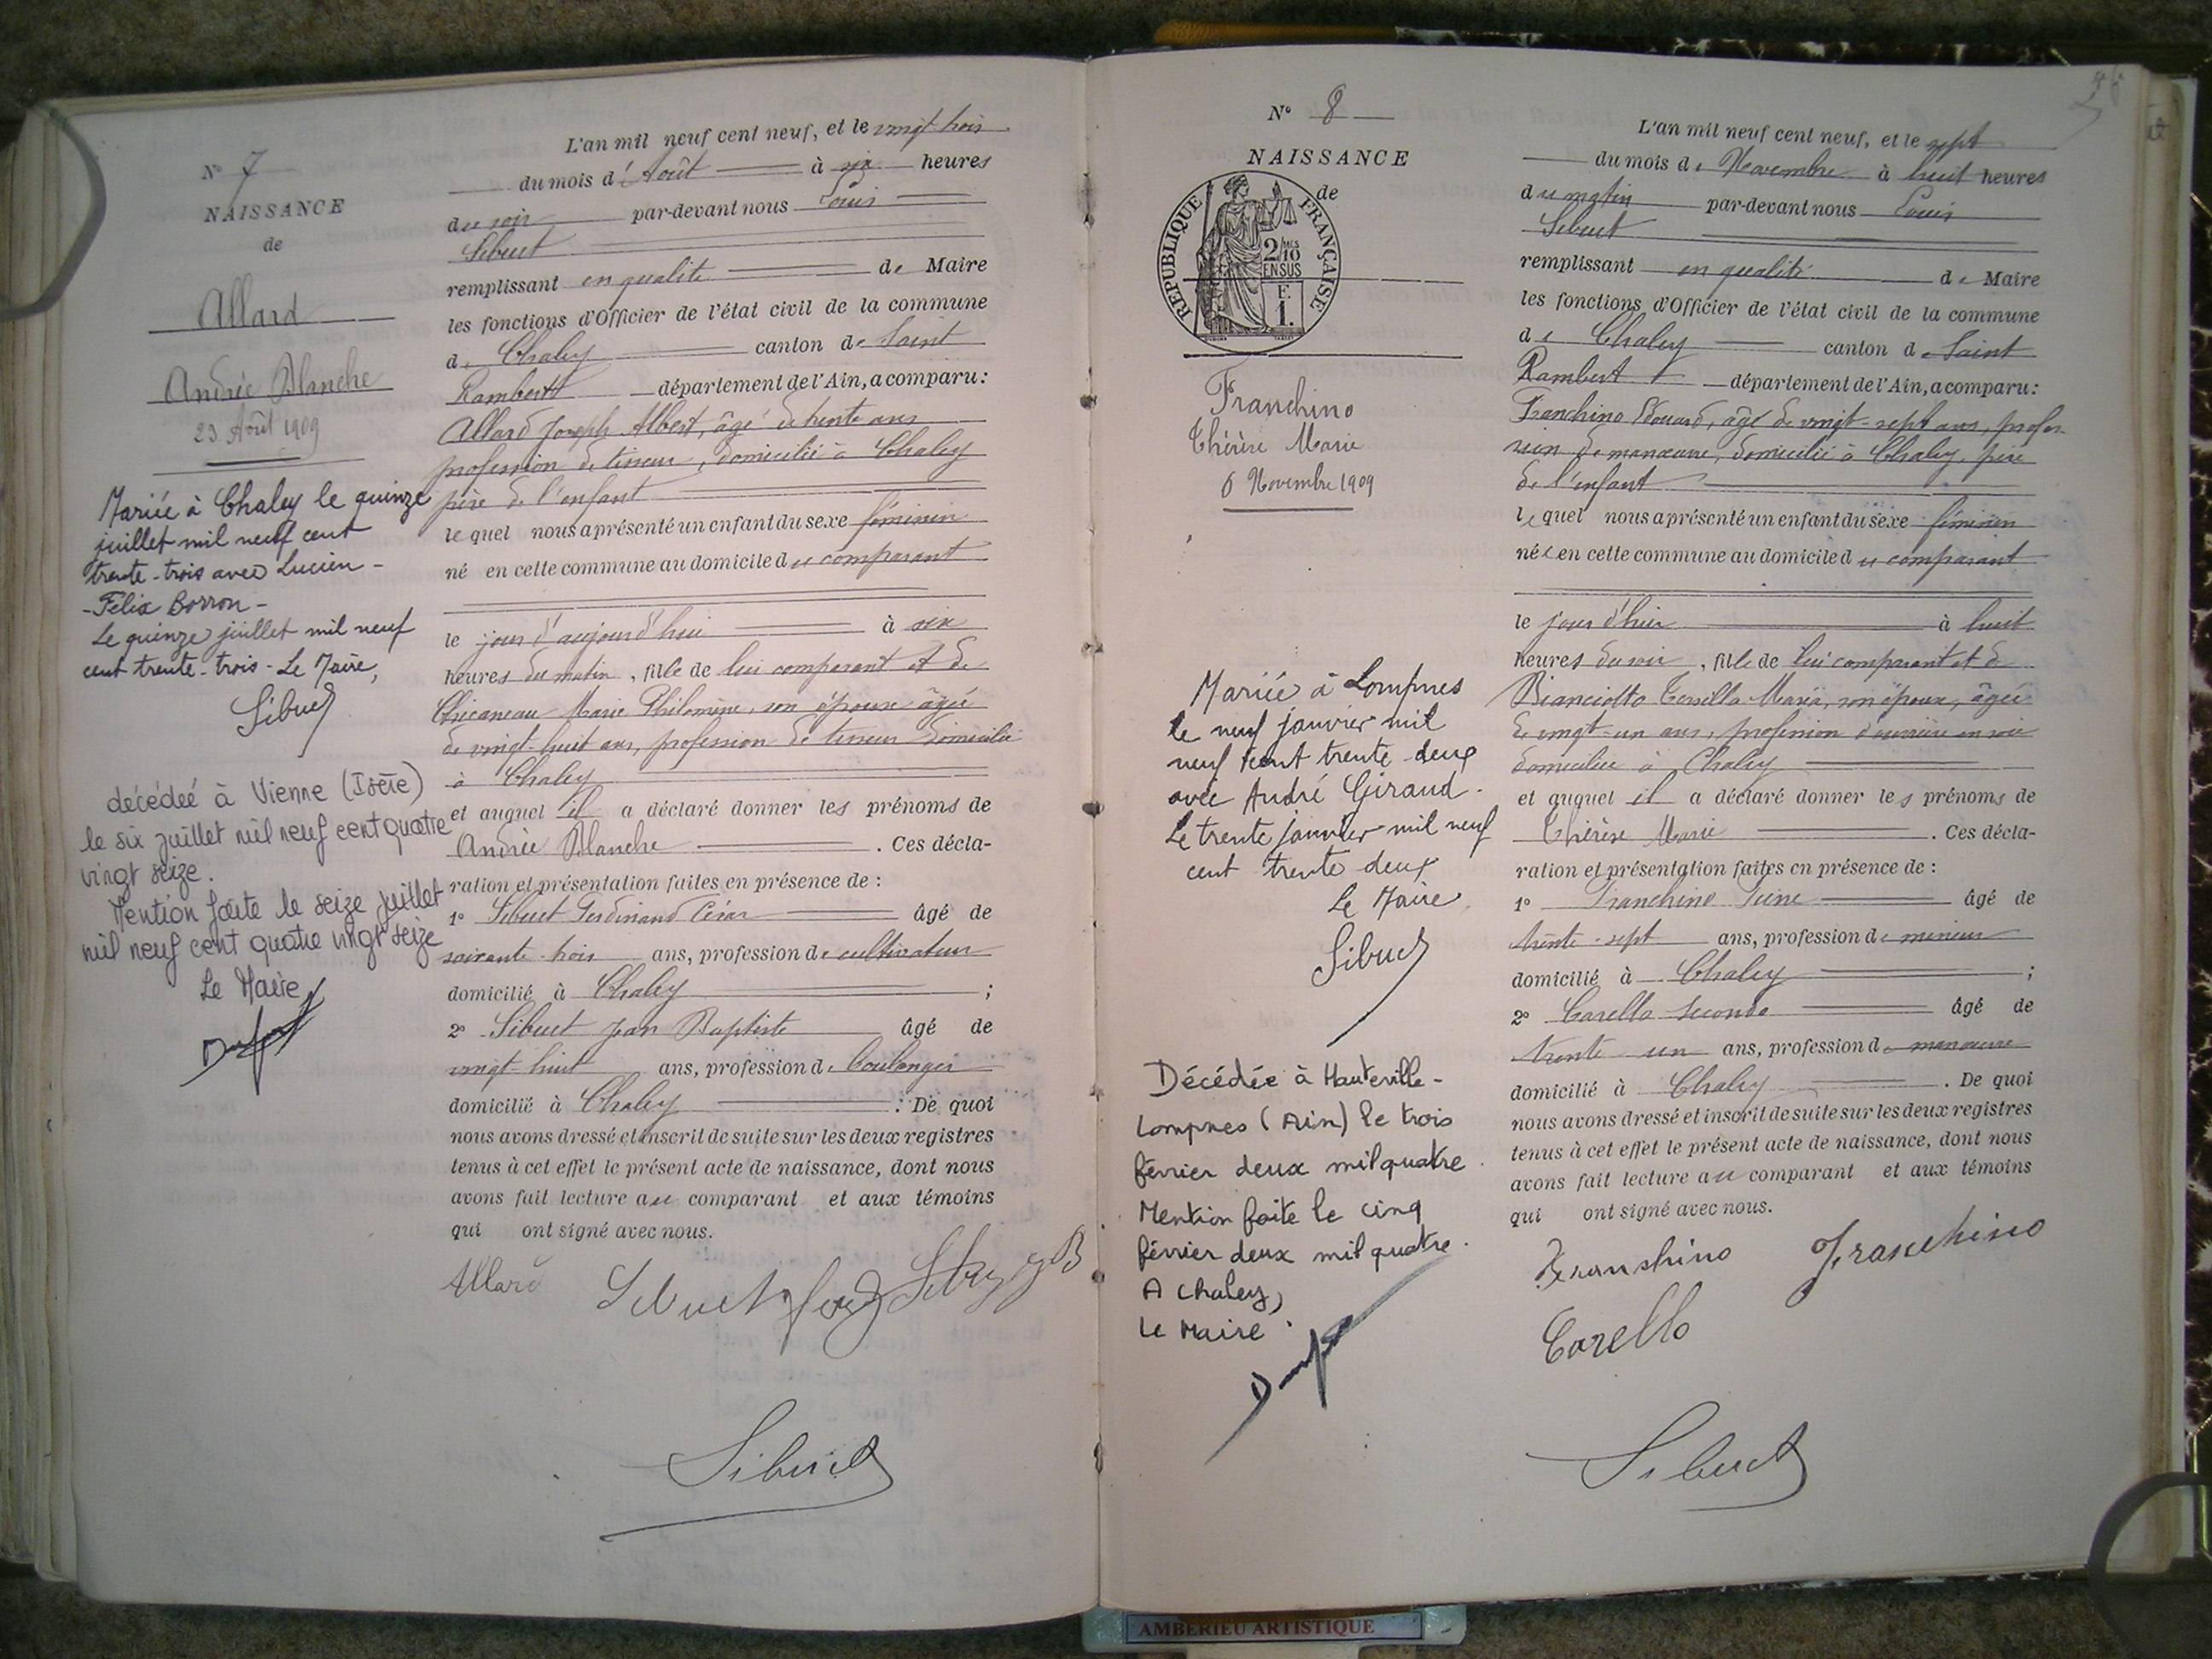 N° 7
NAISSANCE
de
Allard
Andrée Blanche
23 Août 1909
Mariée à Chaley le quinze
juillet mil neuf cent
trente-trois avec Lucien-
-Félix Borron-
Le quinze juillet mil neuf
cent trente-trois - Le Maire,
Sibuet
décédée à Vienne (Isère)
le six juillet mil neuf cent quatre
vingt seize.
Mention faite le seize juillet
mil neuf cent quatre vingt seize
Le Maire,
L'an mil neuf cent neuf, et le vingt trois
du mois d'Août à six heures
du soir par-devant nous Louis
Sibuet
remplissant en qualité de Maire
les fonctions d'Officier de l'état civil de la commune
de Chaley canton de Saint
Rambert département de l'Ain, a comparu:
Allard Joseph Albert, âgé de trente ans
profession de tisseur, domicilié à Chaley
père de l'enfant
lequel nous a présenté un enfant du sexe féminin
né en cette commune au domicile du comparant
le jour d'aujourd'hui à six
heures du matin, fille de lui comparant et de
Chicaneau Marie Philomène, son épouse âgée
de vingt-huit ans, profession de tisseur domicilié
à Chaley
et auquel il a déclaré donner les prénoms de
Andrée Blanche. Ces décla-
ration et présentation faites en présence de :
1° Sibuet Ferdinand César âgé de
soixante-trois ans, profession de cultivateur
domicilié à Chaley ;
2° Sibuet Jean Baptiste âgé de
vingt-huit ans, profession de boulanger
domicilié à Chaley. De quoi
nous avons dressé et inscrit de suite sur les deux registres
tenus à cet effet le présent acte de naissance, dont nous
avons fait lecture au comparant et aux témoins
qui ont signé avec nous.
Allard Sibuet
Sibuet
N° 8
NAISSANCE
de
REPUBLIQUE FRANÇAISE
2/10 MES
EN SUS
F.
1.
Franchino
Thérèse Marie
6 Novembre 1909
Mariée à Lompnes
le neuf janvier mil
neuf cent trente-deux
avec André Giraud.
Le trente janvier mil neuf
cent trente deux
Le Maire
Sibuet
Décédée à Hauteville-
Lompnes (Ain) le trois
février deux mil quatre.
Mention faite le cinq
février deux mil quatre.
A Chaley,
Le Maire
L'an mil neuf cent neuf, et le sept
du mois de Novembre à huit heures
du matin par-devant nous Louis
Sibuet
remplissant en qualité de Maire
les fonctions d'Officier de l'état civil de la commune
de Chaley canton de Saint
Rambert département de l'Ain, a comparu:
Franchino Edouard, âgé de vingt-sept ans, profes-
sion de manœuvre, domicilié à Chaley, père
de l'enfant
lequel nous a présenté un enfant du sexe féminin
née en cette commune au domicile du comparant
le jour d'hier à huit
heures du soir, fille de lui comparant et de
Bianciotto Tersilla Maria, son épouse, âgée
de vingt-un ans, profession d'ouvrière en soie
domiciliée à Chaley
et auquel il a déclaré donner les prénoms de
Thérèse Marie. Ces décla-
ration et présentation faites en présence de :
1° Franchino âgé de
trente-sept ans, profession de mineur
domicilié à Chaley ;
2° Carello Secondo âgé de
trente un ans, profession de manœuvre
domicilié à Chaley. De quoi
nous avons dressé et inscrit de suite sur les deux registres
tenus à cet effet le présent acte de naissance, dont nous
avons fait lecture au comparant et aux témoins
qui ont signé avec nous.
Franchino Franchino
Carello
Sibuet
AMBERIEU ARTISTIQUE